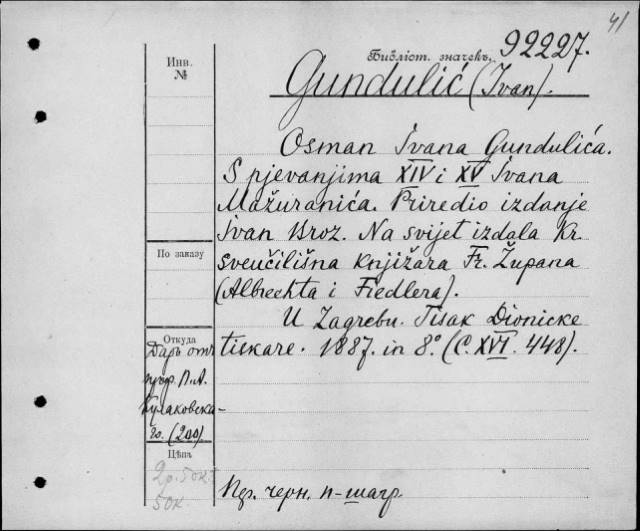 41
Библіот. значекъ. 92227.
Инв.
№
Gundulić (Ivan).
Osman Ivana Gundulića.
S pjevanjima XIV i XV Ivana
Mažuranića. Priredio izdanje
Ivan Broz. Na svijet izdala Kr.
sveučilišna knjižara Fr. Župana
(Albrechta i Fiedlera).
U Zagrebu. Tisak Dioničke
tiskare. 1887. in 8º. (С. XVI. 448).
По заказу
Откуда
Даръ отъ
проф. П. А.
Кулаковска-
го. (200).
Цѣна
2р. 50к.
50к.
Пер. черн. п-шагр.